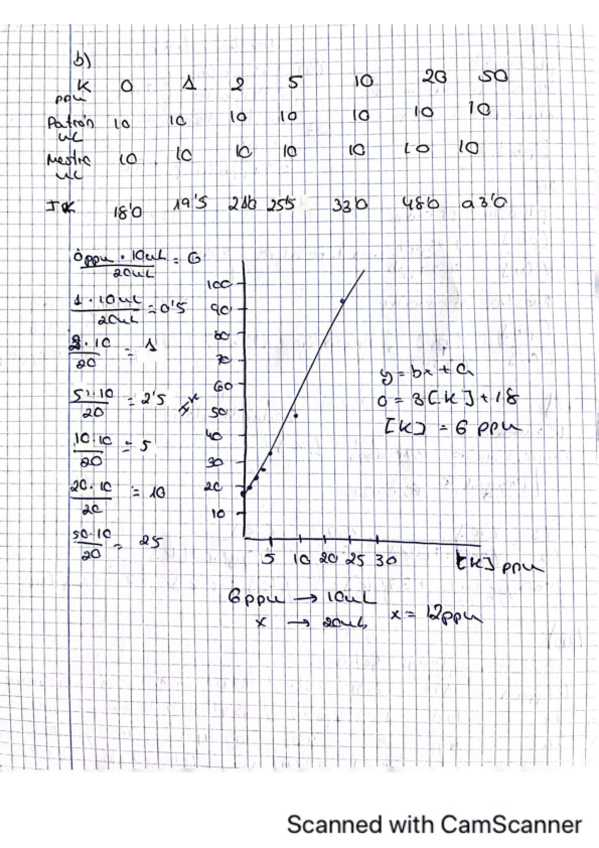 b)
K ppm 0 1 2 5 10 20 50
Patrón uL 10 10 10 10 10 10 10
Mestra uL 10 10 10 10 10 10 10
IK 18'0 19'5 21'0 25'5 33'0 48'0 93'0
0ppm · 10uL / 20uL = 0
1 · 10uL / 20uL = 0'5
2 · 10 / 20 = 1
5 · 10 / 20 = 2'5
10 · 10 / 20 = 5
20 · 10 / 20 = 10
50 · 10 / 20 = 25
100
90
80
70
60
50
40
30
20
10
5 10 20 25 30 [K] ppm
y = bx + a
0 = 3[K] + 18
[K] = 6 ppm
6ppm → 10uL
x → 20uL x = 12ppm
Scanned with CamScanner